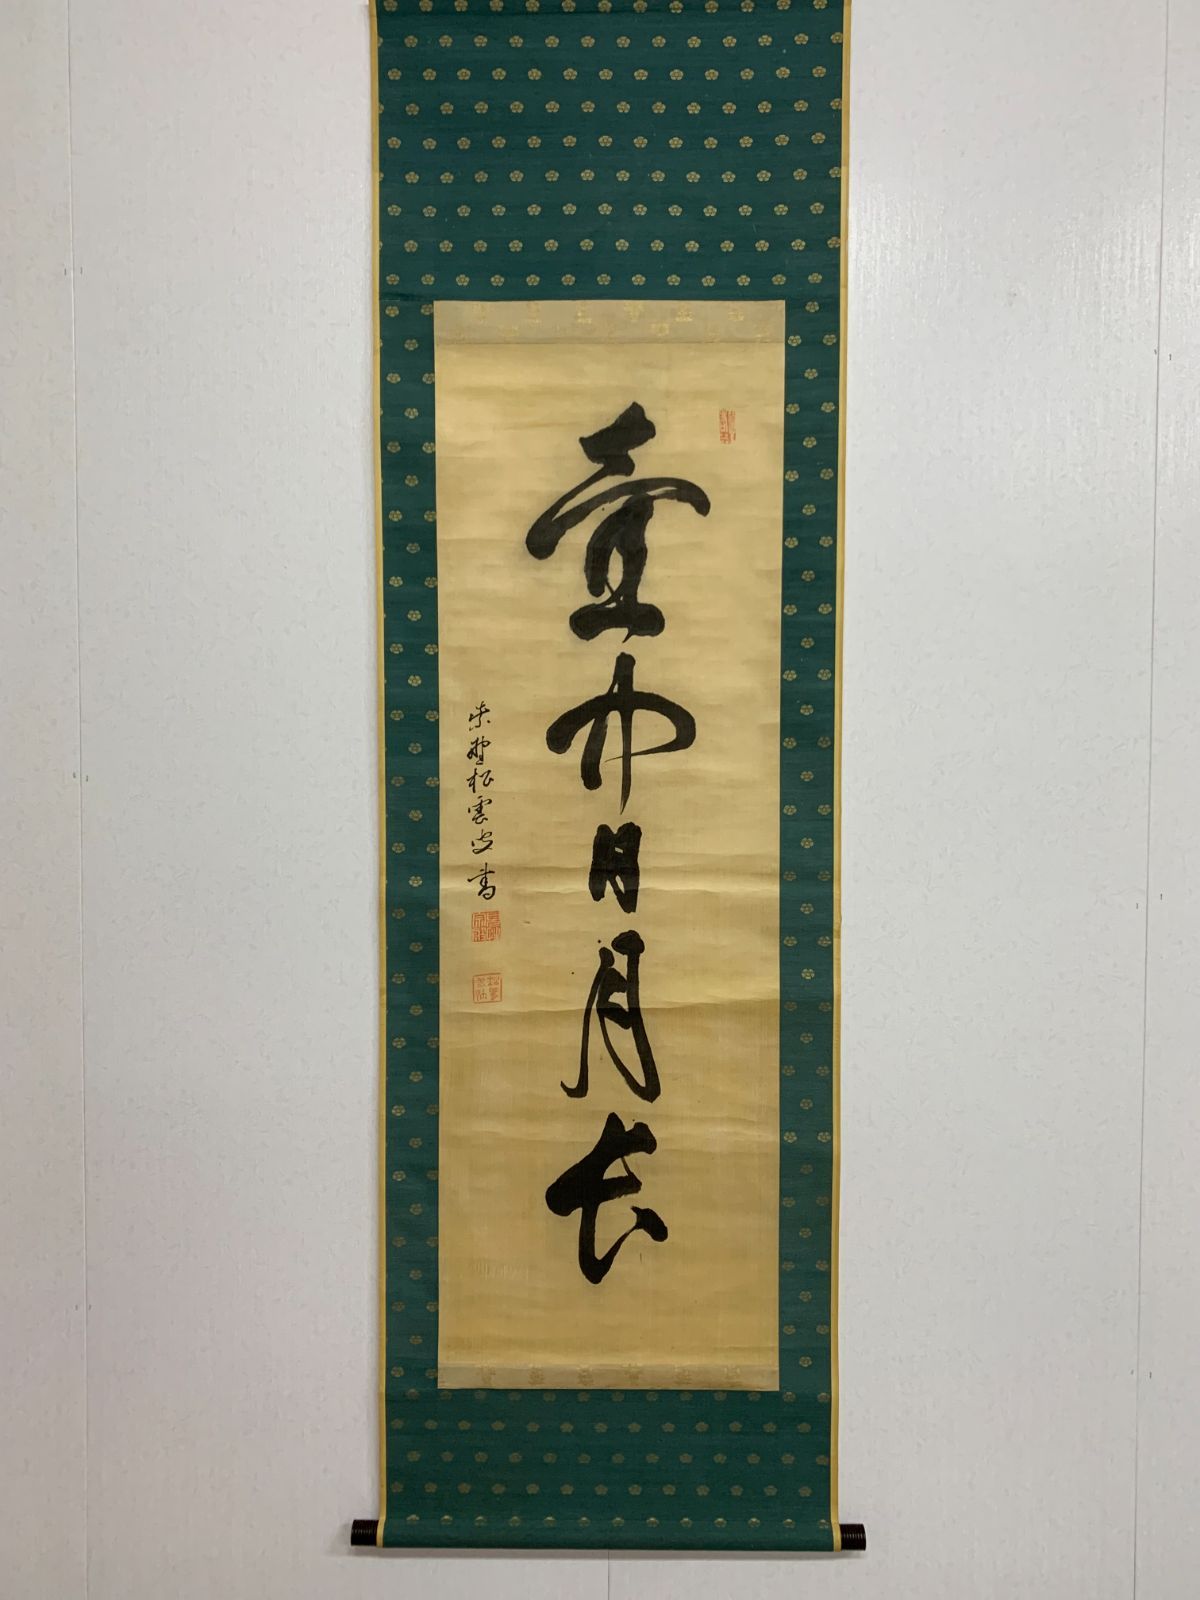 壷中日月長
紫野松雲叟書